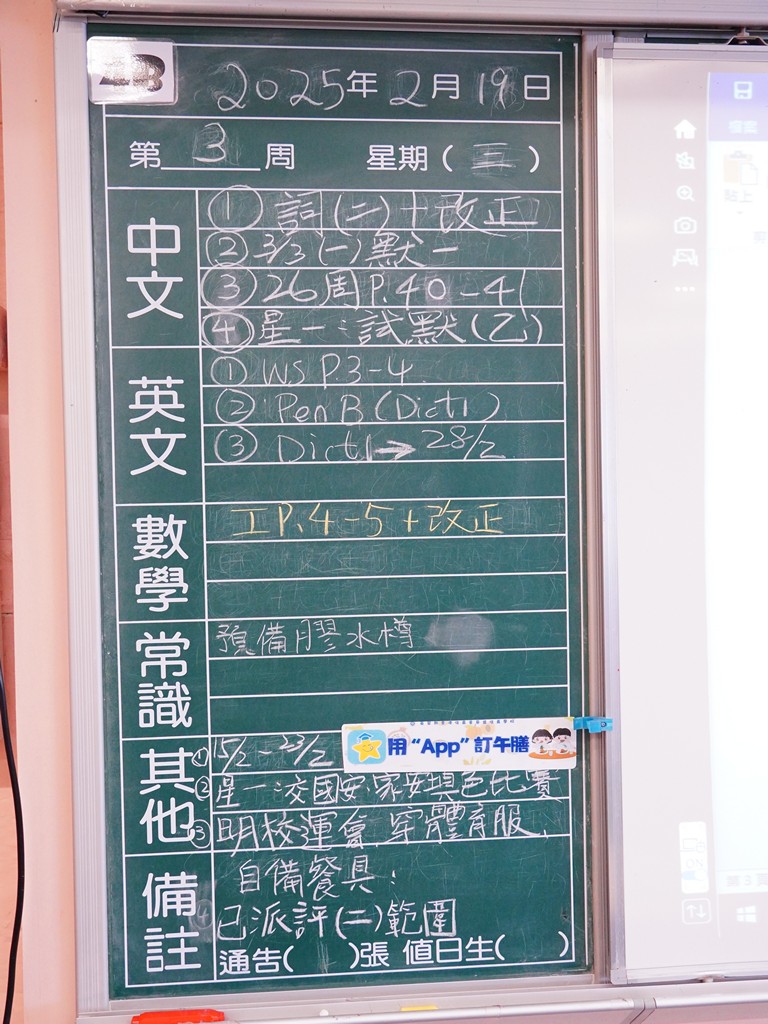 2025年2月19日
第3周 星期(三)
中文
① 詞(二)+改正
② 3/3(一)默一
③ 26周P.40-41
④ 星一:試默(乙)
英文
① WS P.3-4
② Pen B (Dict1)
③ Dict1→28/2
數學
工P.4-5+改正
常識
預備膠水樽
其他
① 15/2-23/2
用“App”訂午膳
② 星一交國安家安填色比賽
③ 明校運會,穿體育服.
備註
自備餐具!
已派評(二)範圍
通告( )張 值日生( )